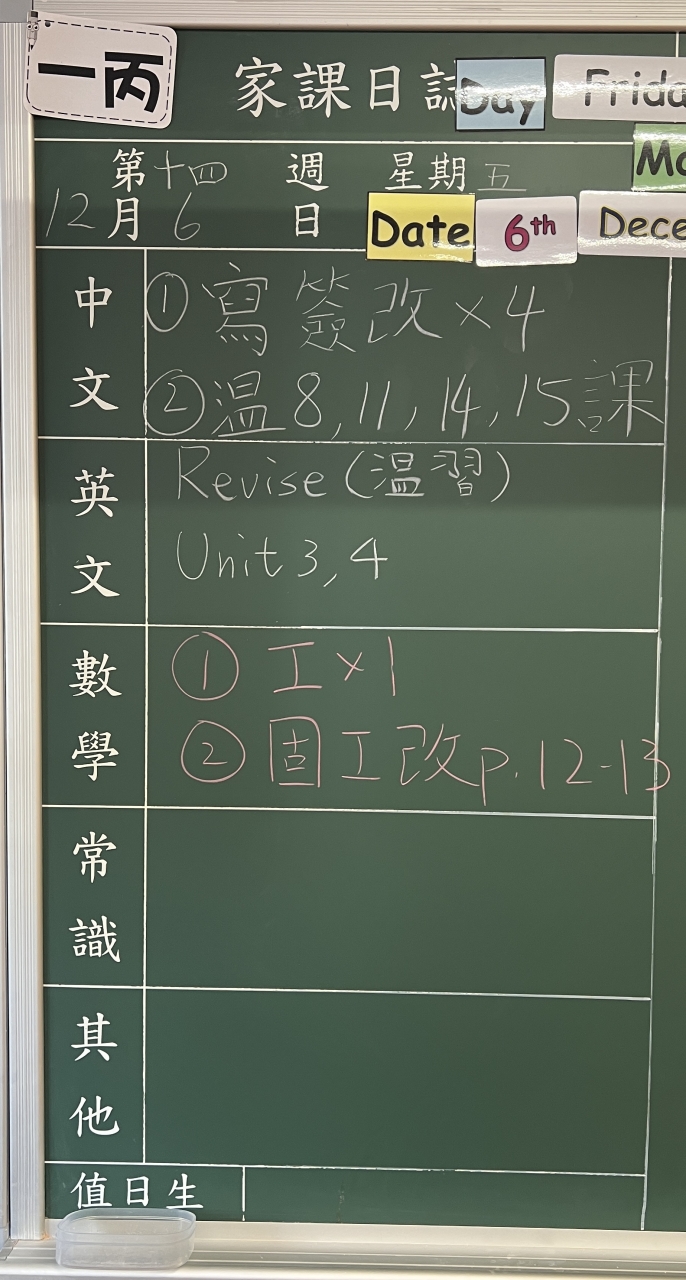 一丙
家課日誌 Day Frida
第十四週 星期五 Mo
12月6日 Date 6th Dece
中文
①寫簽改×4
②温8,11,14,15課
英文
Revise(温習)
Unit 3,4
數學
①工×1
②固工改p.12-13
常識
其他
值日生